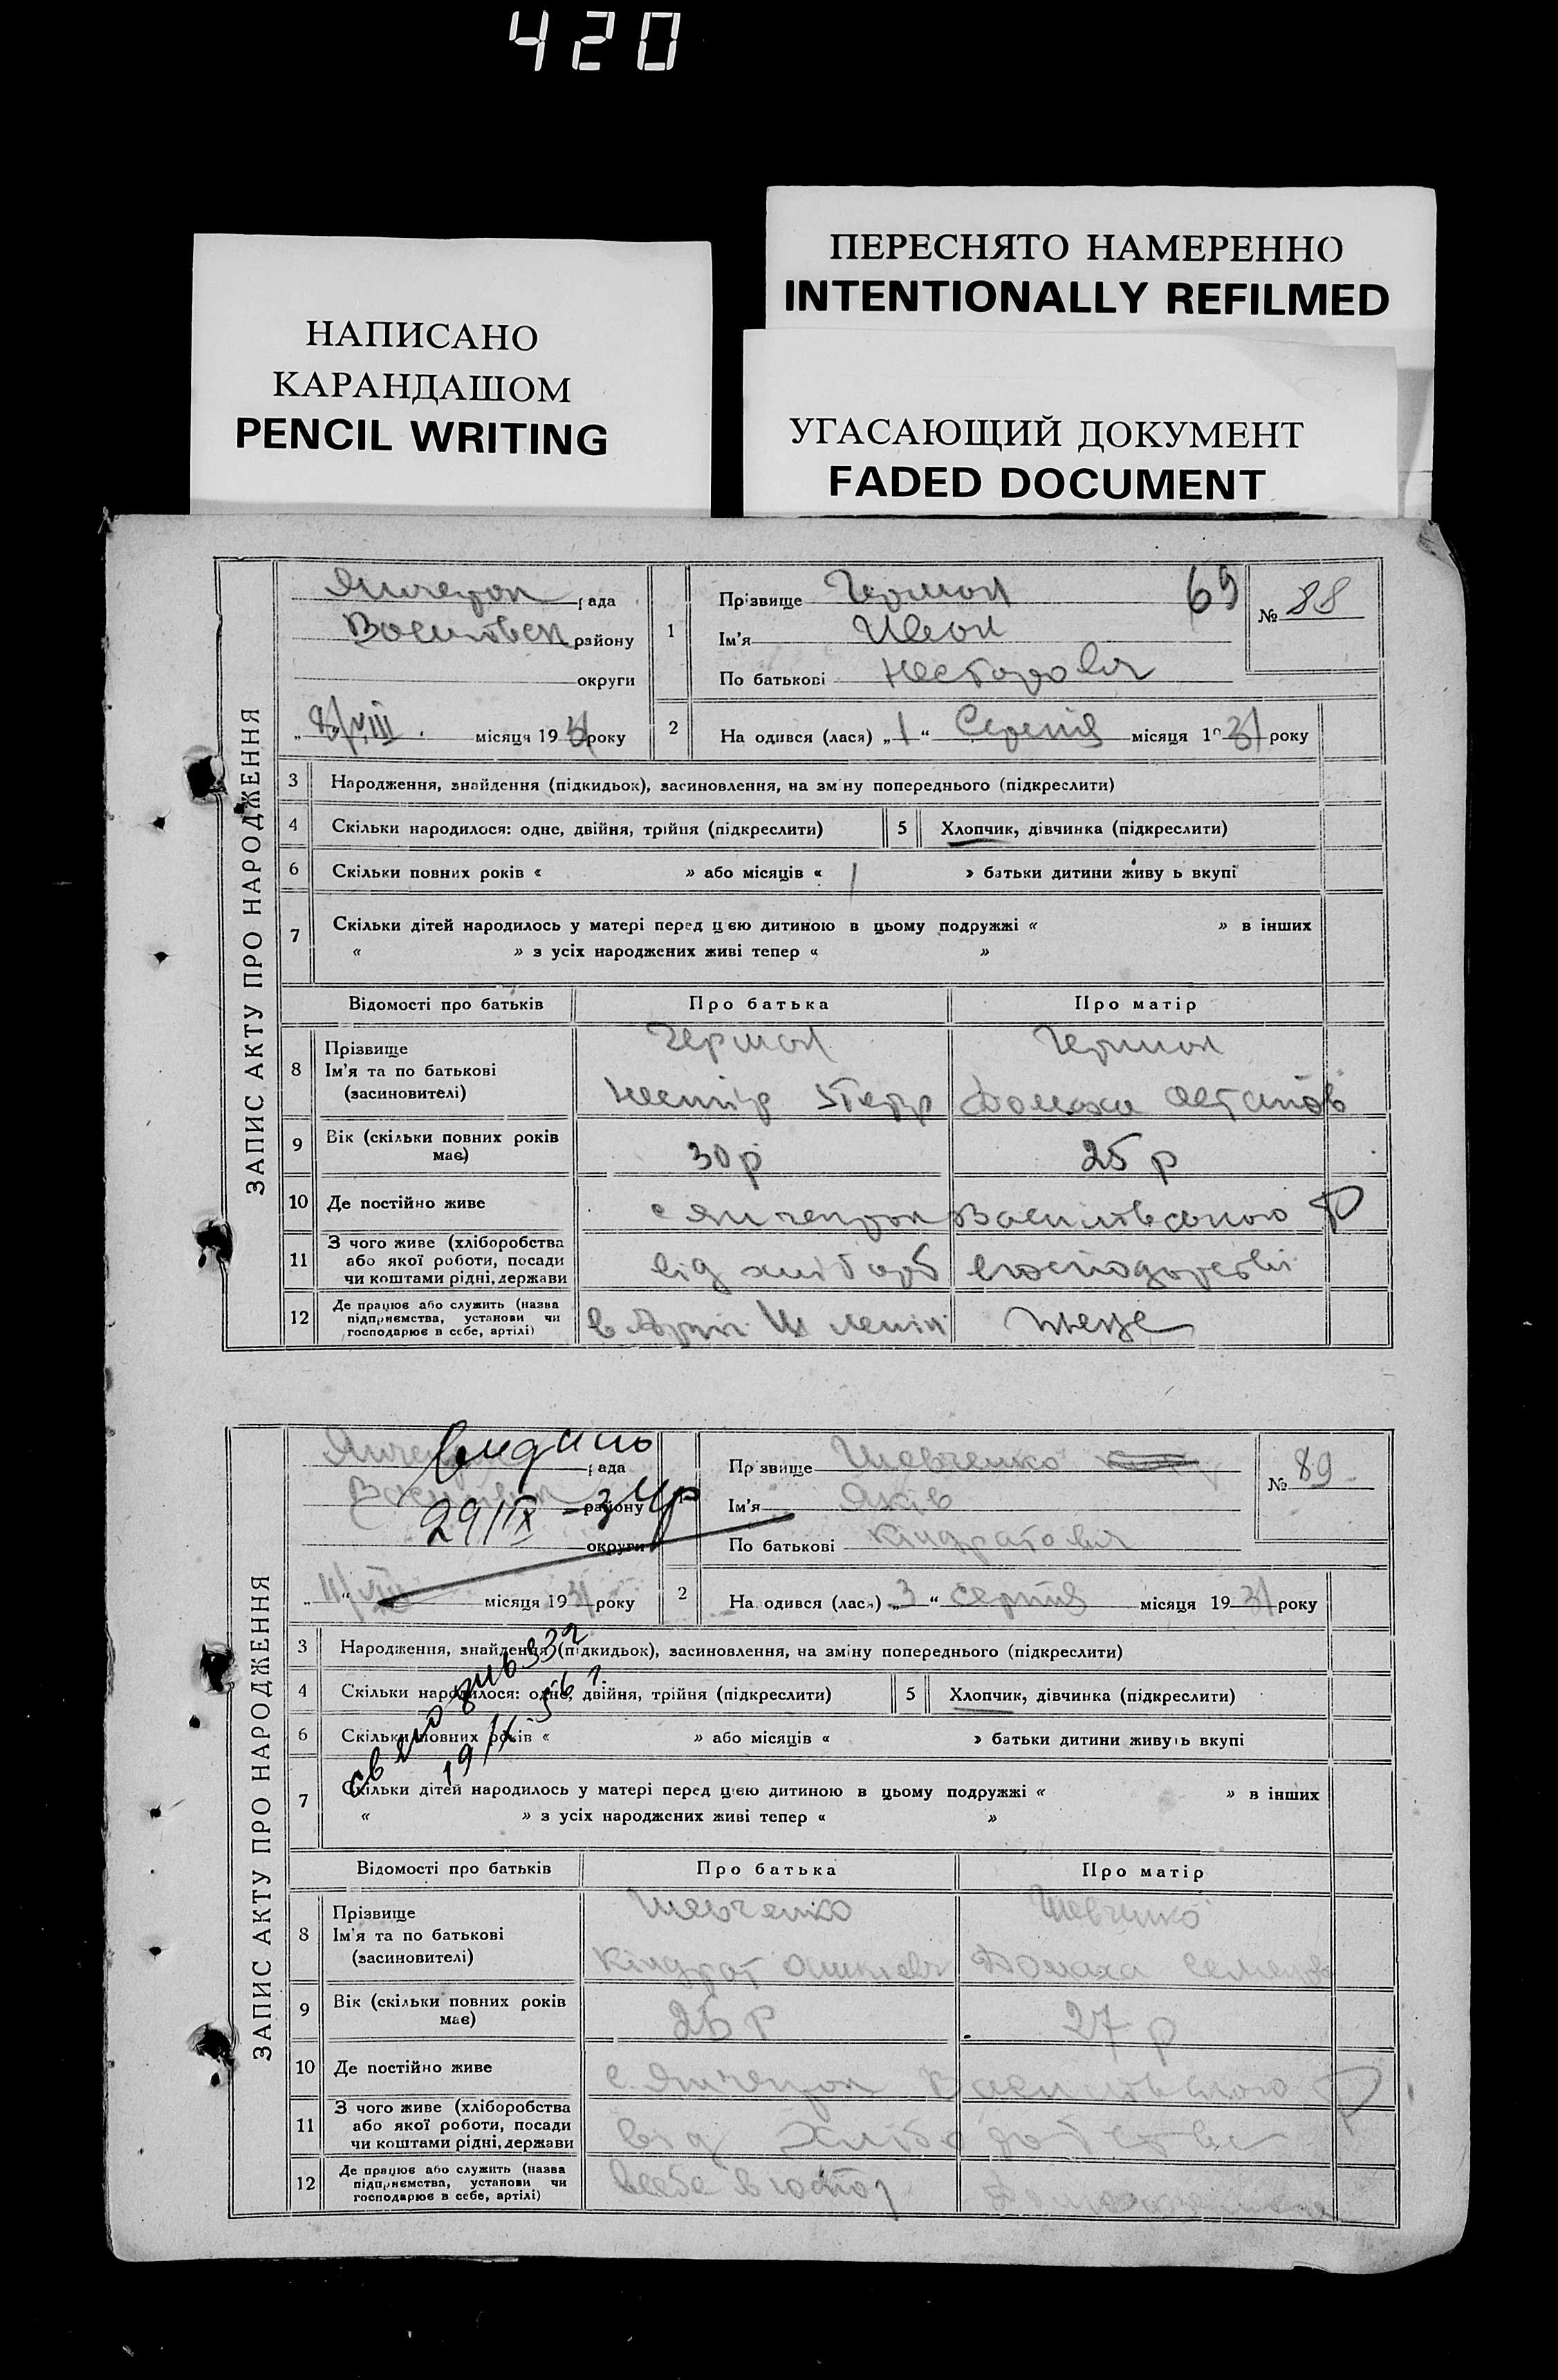 420
ПЕРЕСНЯТО НАМЕРЕННО
INTENTIONALLY REFILMED
НАПИСАНО
КАРАНДАШОМ
PENCIL WRITING
УГАСАЮЩИЙ ДОКУМЕНТ
FADED DOCUMENT
ЗАПИС АКТУ ПРО НАРОДЖЕННЯ
рада
району
округи
8/VIII місяця 1931 року
1
Прізвище Герман 69
Ім'я Иван
По батькові Несторович
№ 88
2 На одився (лася) „1“ Серпня місяця 1931 року
3 Народження, знайдення (підкидьок), засиновлення, на зміну попереднього (підкреслити)
4 Скільки народилося: одне, двійня, трійня (підкреслити) 5 Хлопчик, дівчинка (підкреслити)
6 Скільки повних років « » або місяців « 1 » батьки дитини живу ь вкупі
7 Скільки дітей народилось у матері перед цією дитиною в цьому подружжі « » в інших
« » з усіх народжених живі тепер « »
Відомості про батьків Про батька Про матір
8 Прізвище
Ім'я та по батькові
(засиновителі)
Герман Герман
Нестір Домаха Остапов
9 Вік (скільки повних років
має) 30 р 25 р
10 Де постійно живе с Янчекрак Василівського Р
11 З чого живе (хліборобства
або якої роботи, посади
чи коштами рідні, держави
від
12 Де працює або служить (назва
підприємства, установи чи
господарює в себе, артілі)
в Ленін
ЗАПИС АКТУ ПРО НАРОДЖЕННЯ
рада
району
округи
29/IX
11/VIII місяця 1931 року
1
Прізвище Шевченко
Ім'я Яків
По батькові Кіндратович
№ 89
2 На одився (лася) „3“ серпня місяця 1931 року
3 Народження, знайдення (підкидьок), засиновлення, на зміну попереднього (підкреслити)
4 Скільки народилося: одне, двійня, трійня (підкреслити) 5 Хлопчик, дівчинка (підкреслити)
6 Скільки повних років « » або місяців « » батьки дитини живуть вкупі
7 Скільки дітей народилось у матері перед цією дитиною в цьому подружжі « » в інших
« » з усіх народжених живі тепер « »
Відомості про батьків Про батька Про матір
8 Прізвище
Ім'я та по батькові
(засиновителі)
Шевченко Шевченко
Кіндрат Домаха Семенов
9 Вік (скільки повних років
має) 26 р 27 р
10 Де постійно живе с. Янчекрак Василівського Р
11 З чого живе (хліборобства
або якої роботи, посади
чи коштами рідні, держави
від
12 Де працює або служить (назва
підприємства, установи чи
господарює в себе, артілі)